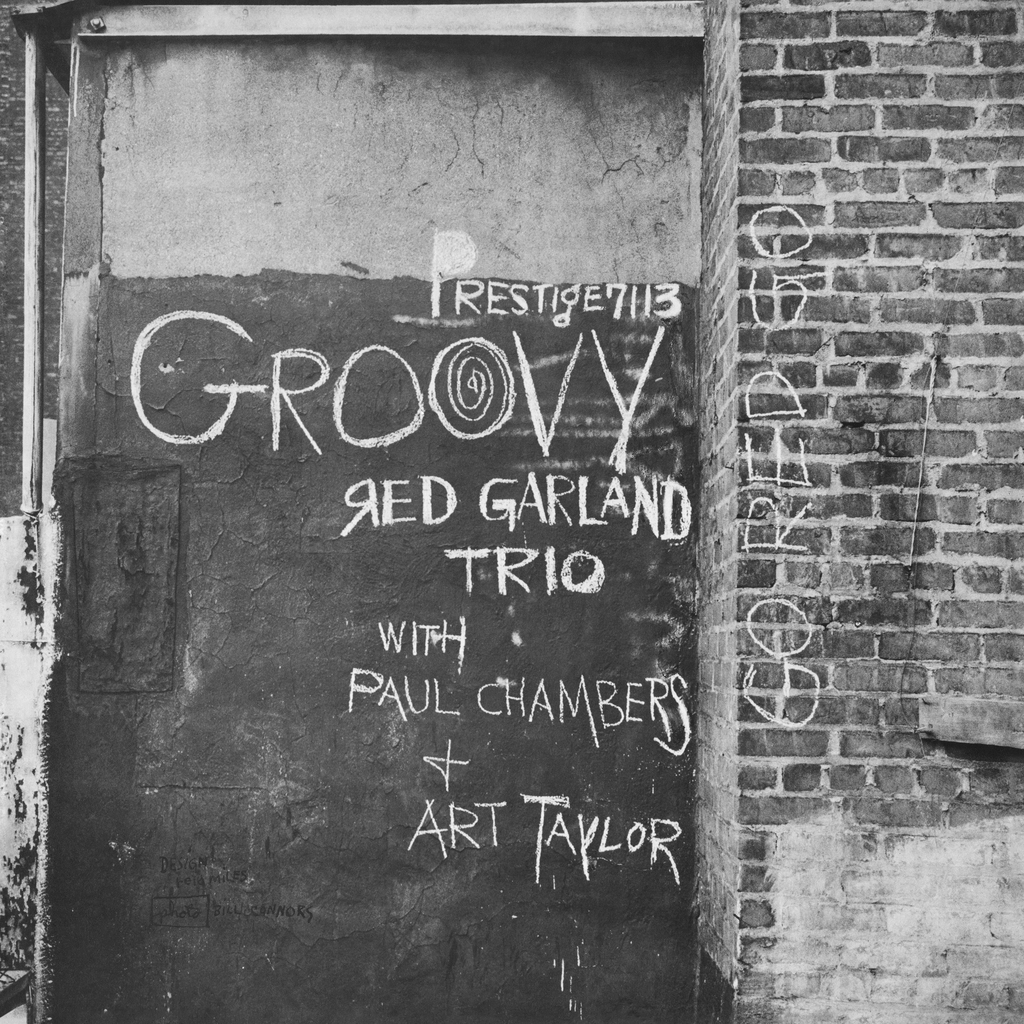 PRESTIGE7113
GROOVY
RED GARLAND
TRIO
WITH
PAUL CHAMBERS
+
ART TAYLOR
GO RED GO
DESIGN
MILES
photo BILL CONNORS